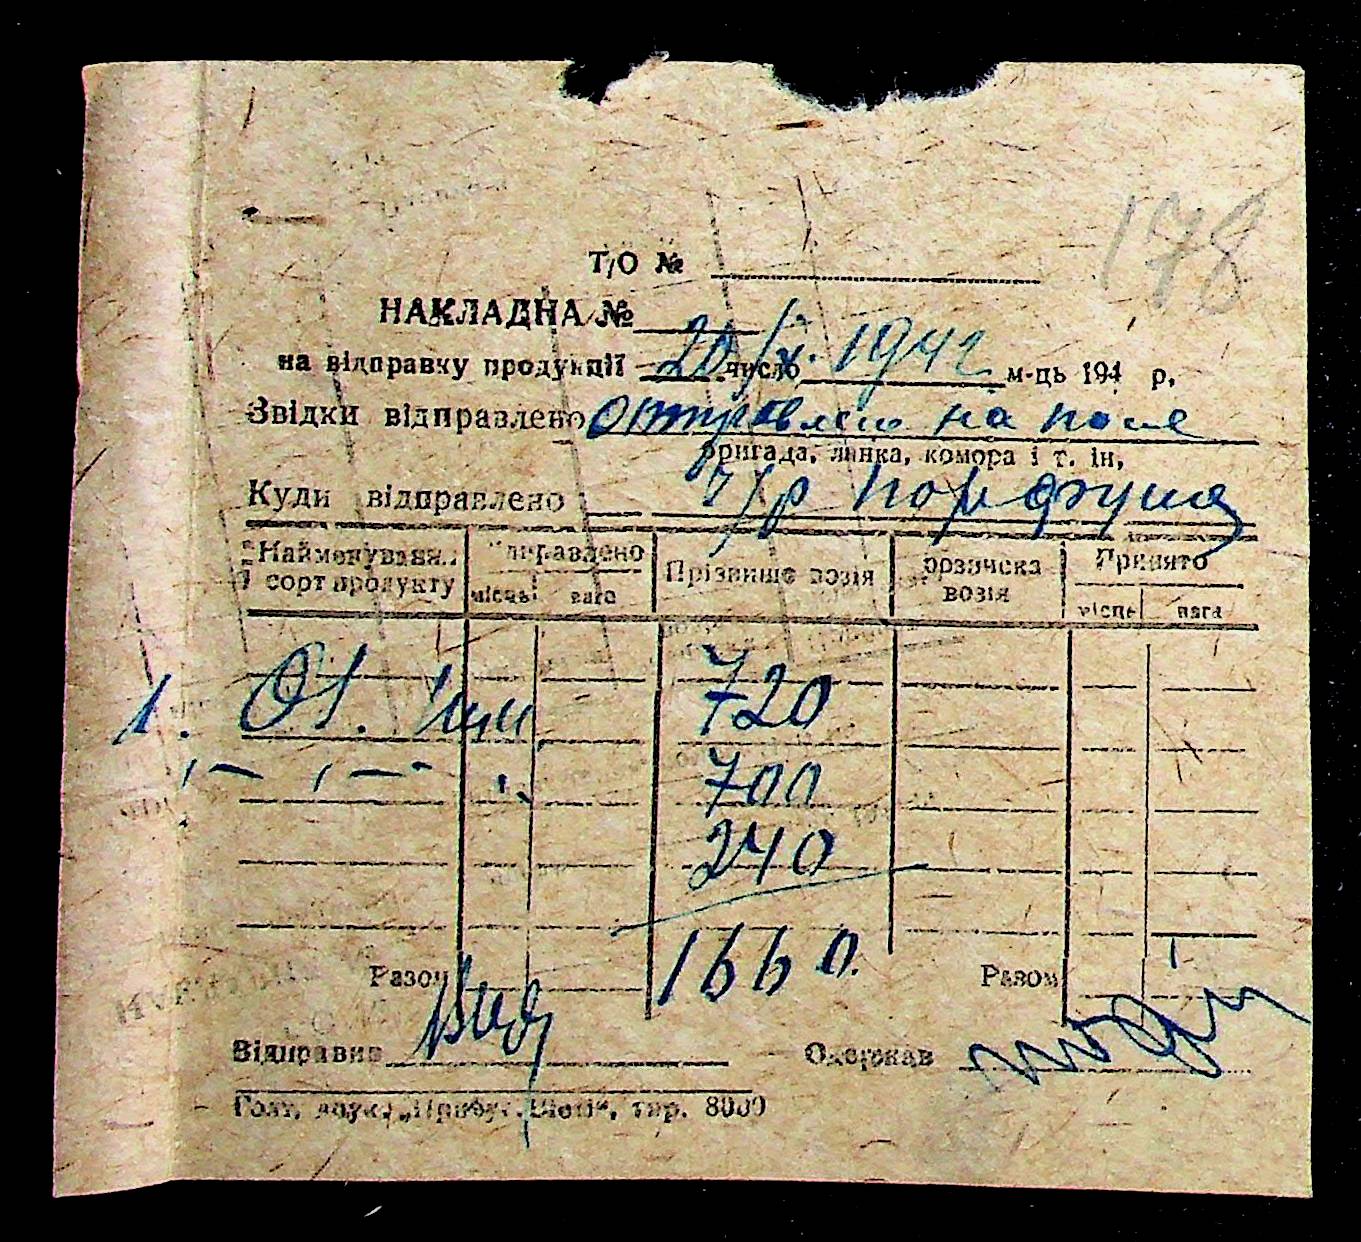 178
Т/О №
НАКЛАДНА №
на відправку продукції 20/X. 1942 число м-ць 194 р.
Звідки відправлено отправлено на поле
бригада, ланка, комора і т. ін.
Куди відправлено ч/р
Найменування і сорт продукту | Відправлено | Прізвище возія | Розписка возія | Принято
місць | вага | місць | вага
1. От. 720
700
240
Разом 1660. Разом
Відправив Одержав
тир. 8000